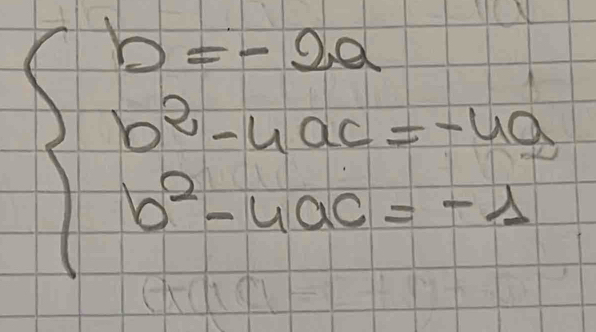 b = - 2a
b² - 4ac = -4a
b² - 4ac = - 1